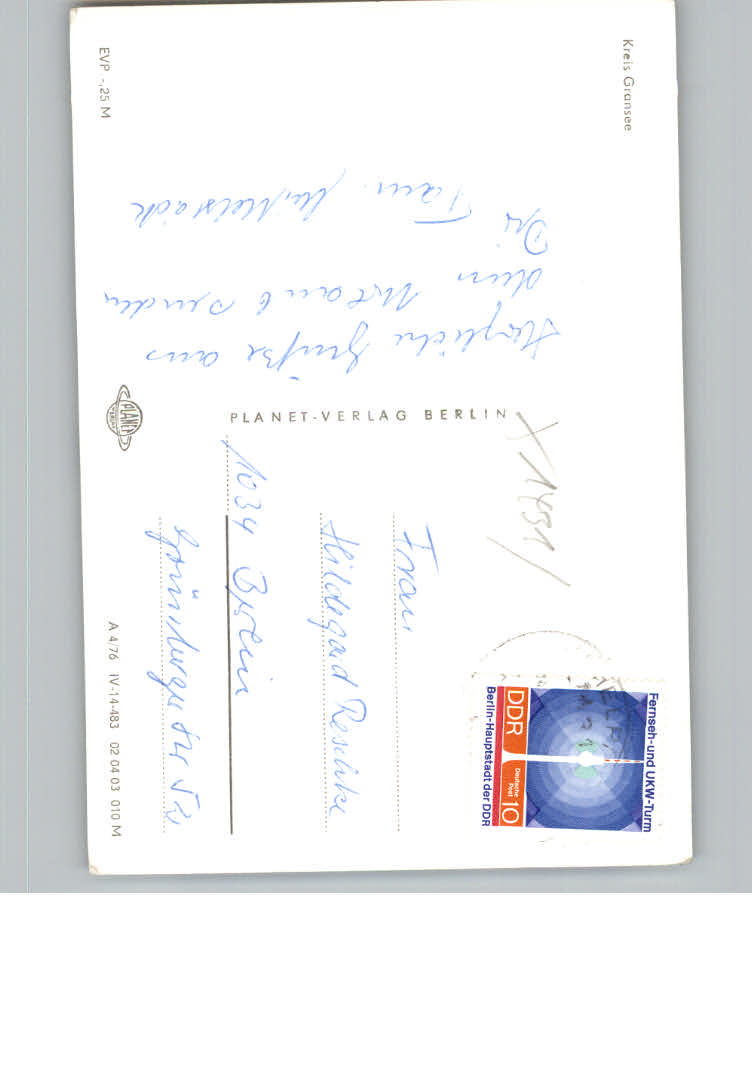 Kreis Gransee
Herzliche Grüße aus
dem Urlaub senden
Die Fam. 
EVP -,25 M
PLANET-VERLAG BERLIN
PLANET
VERLAG
Frau
Hildegard
1034 Berlin
Grünberger Str 52
A 4/76 IV-14-483 02 04 03 010 M
Fernseh-und UKW-Turm
DDR
Deutsche
Post
10
Berlin-Hauptstadt der DDR